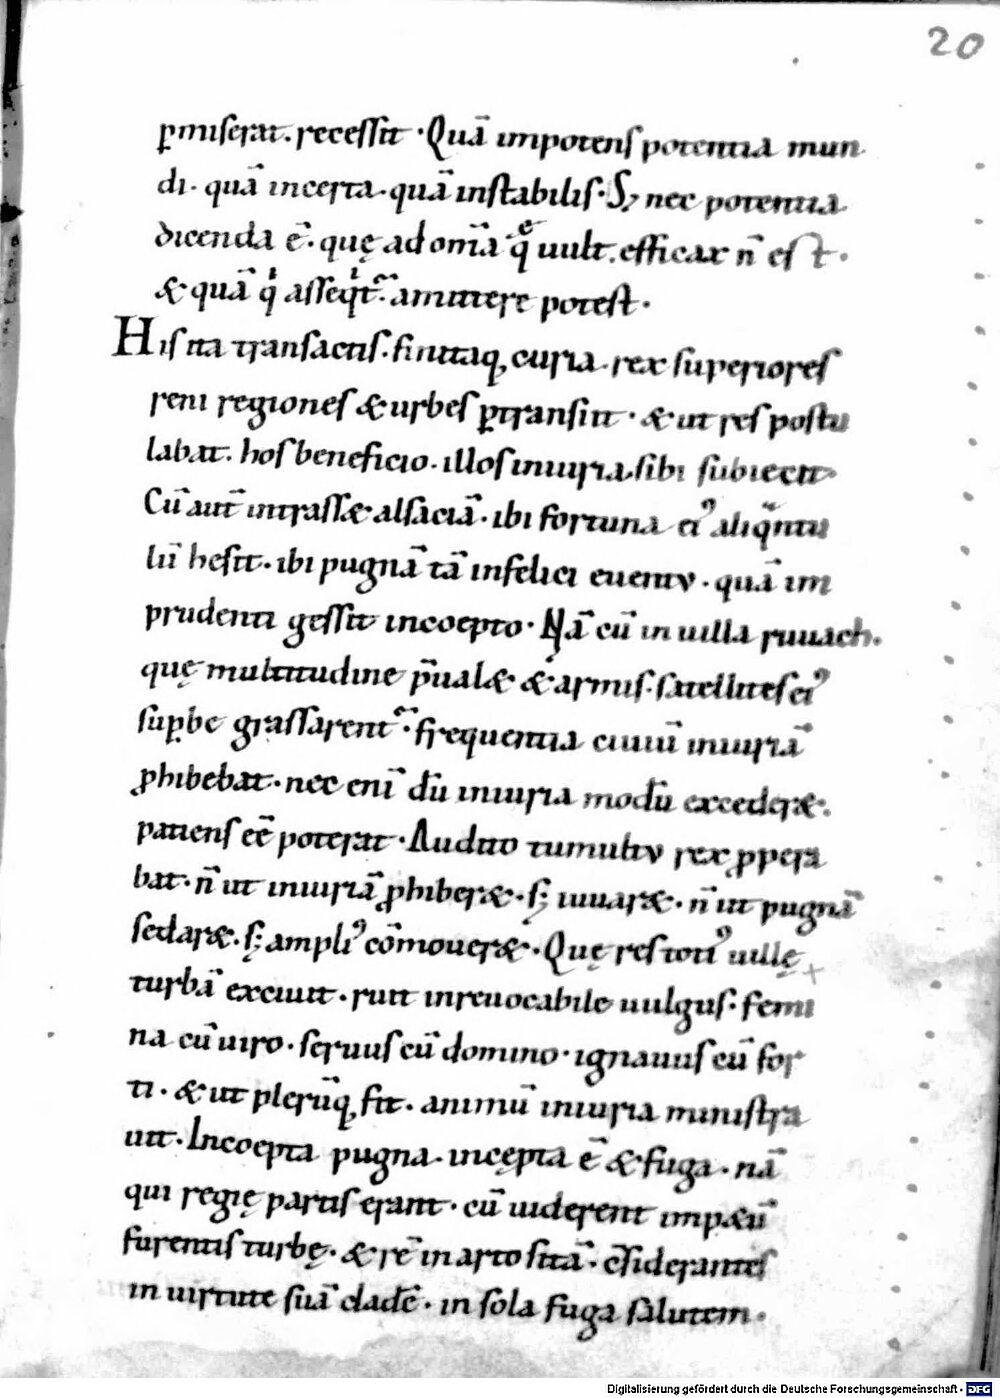 20
p̱miserat. recessit · Quā impotens potentia mun
di. quā incerta. quā instabilis. Sꝫ nec potentia
dicenda ē. quę ad om̄ia q̊ uult. efficax n̄ est.
& quā qͥ asseqͥt᷑. amittere potest.
His ita transactis. finitaq; curia. rex superiores
reni regiones & urbes ꝑtransiit. & ut res postu
labat. hos beneficio. illos iniuria sibi subiecit
Cū aut̄ intrass& alsaciā. ibi fortuna ei᾽ aliq̄ntu
lū hesit. ibi pugnā tā infelici euentu. quā im
prudenti gessit incoepto. Nā cū in uilla ruuach.
quę multitudine p̄ual& & armis. satellites ei᾽
suꝑbe grassarent᷑. frequentia ciuiū iniuriā
ꝓhibebat. nec eni dū iniuria modū exceder&.
patiens eē poterat. Audito tumultu rex ꝓpera
bat. n̄ ut iniuriā ꝓhiber&. sꝫ iuuar&. n̄ ut pugnā
sedar&. sꝫ ampli᾽ cōmouer&. Quę res toti᾽ uillę
turbā exciuit. ruit inreuocabile uulgus. femi
na cū uiro. seruus cū domino. ignauus cū for
ti. & ut plerūq; fit. animū iniuria ministra
uit. Incoepta pugna. incępta ē & fuga. nā
qui regię partis erant. cū uiderent impætū
furentis turbę. & rē in arto sitā. c̄siderantes
in uirtute suā cladē. in sola fuga salutem.
Digitalisierung gefördert durch die Deutsche Forschungsgemeinschaft - DFG